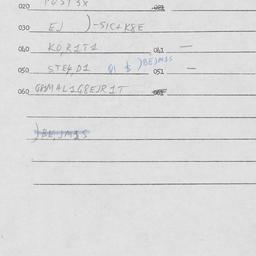 020 POST SX 021
030 EJ )-SIC+K8E
040 KO,R1T1 041 —
050 STE4,D1 Q1 $ )BEJM1S 051 —
060 GHMAL1G8EJR1T 061
)BE,JM1S